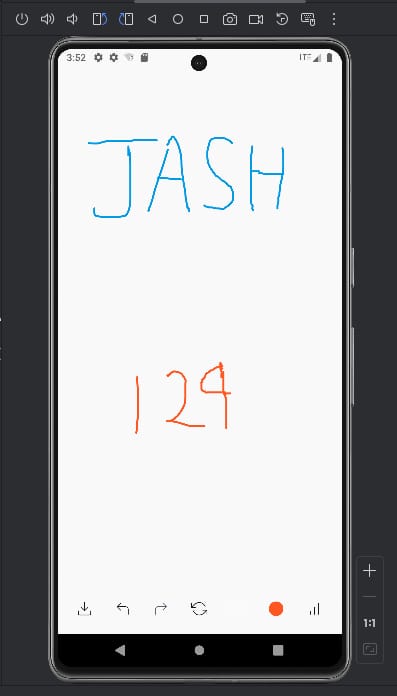 3:52 LTE
JASH
124
1:1